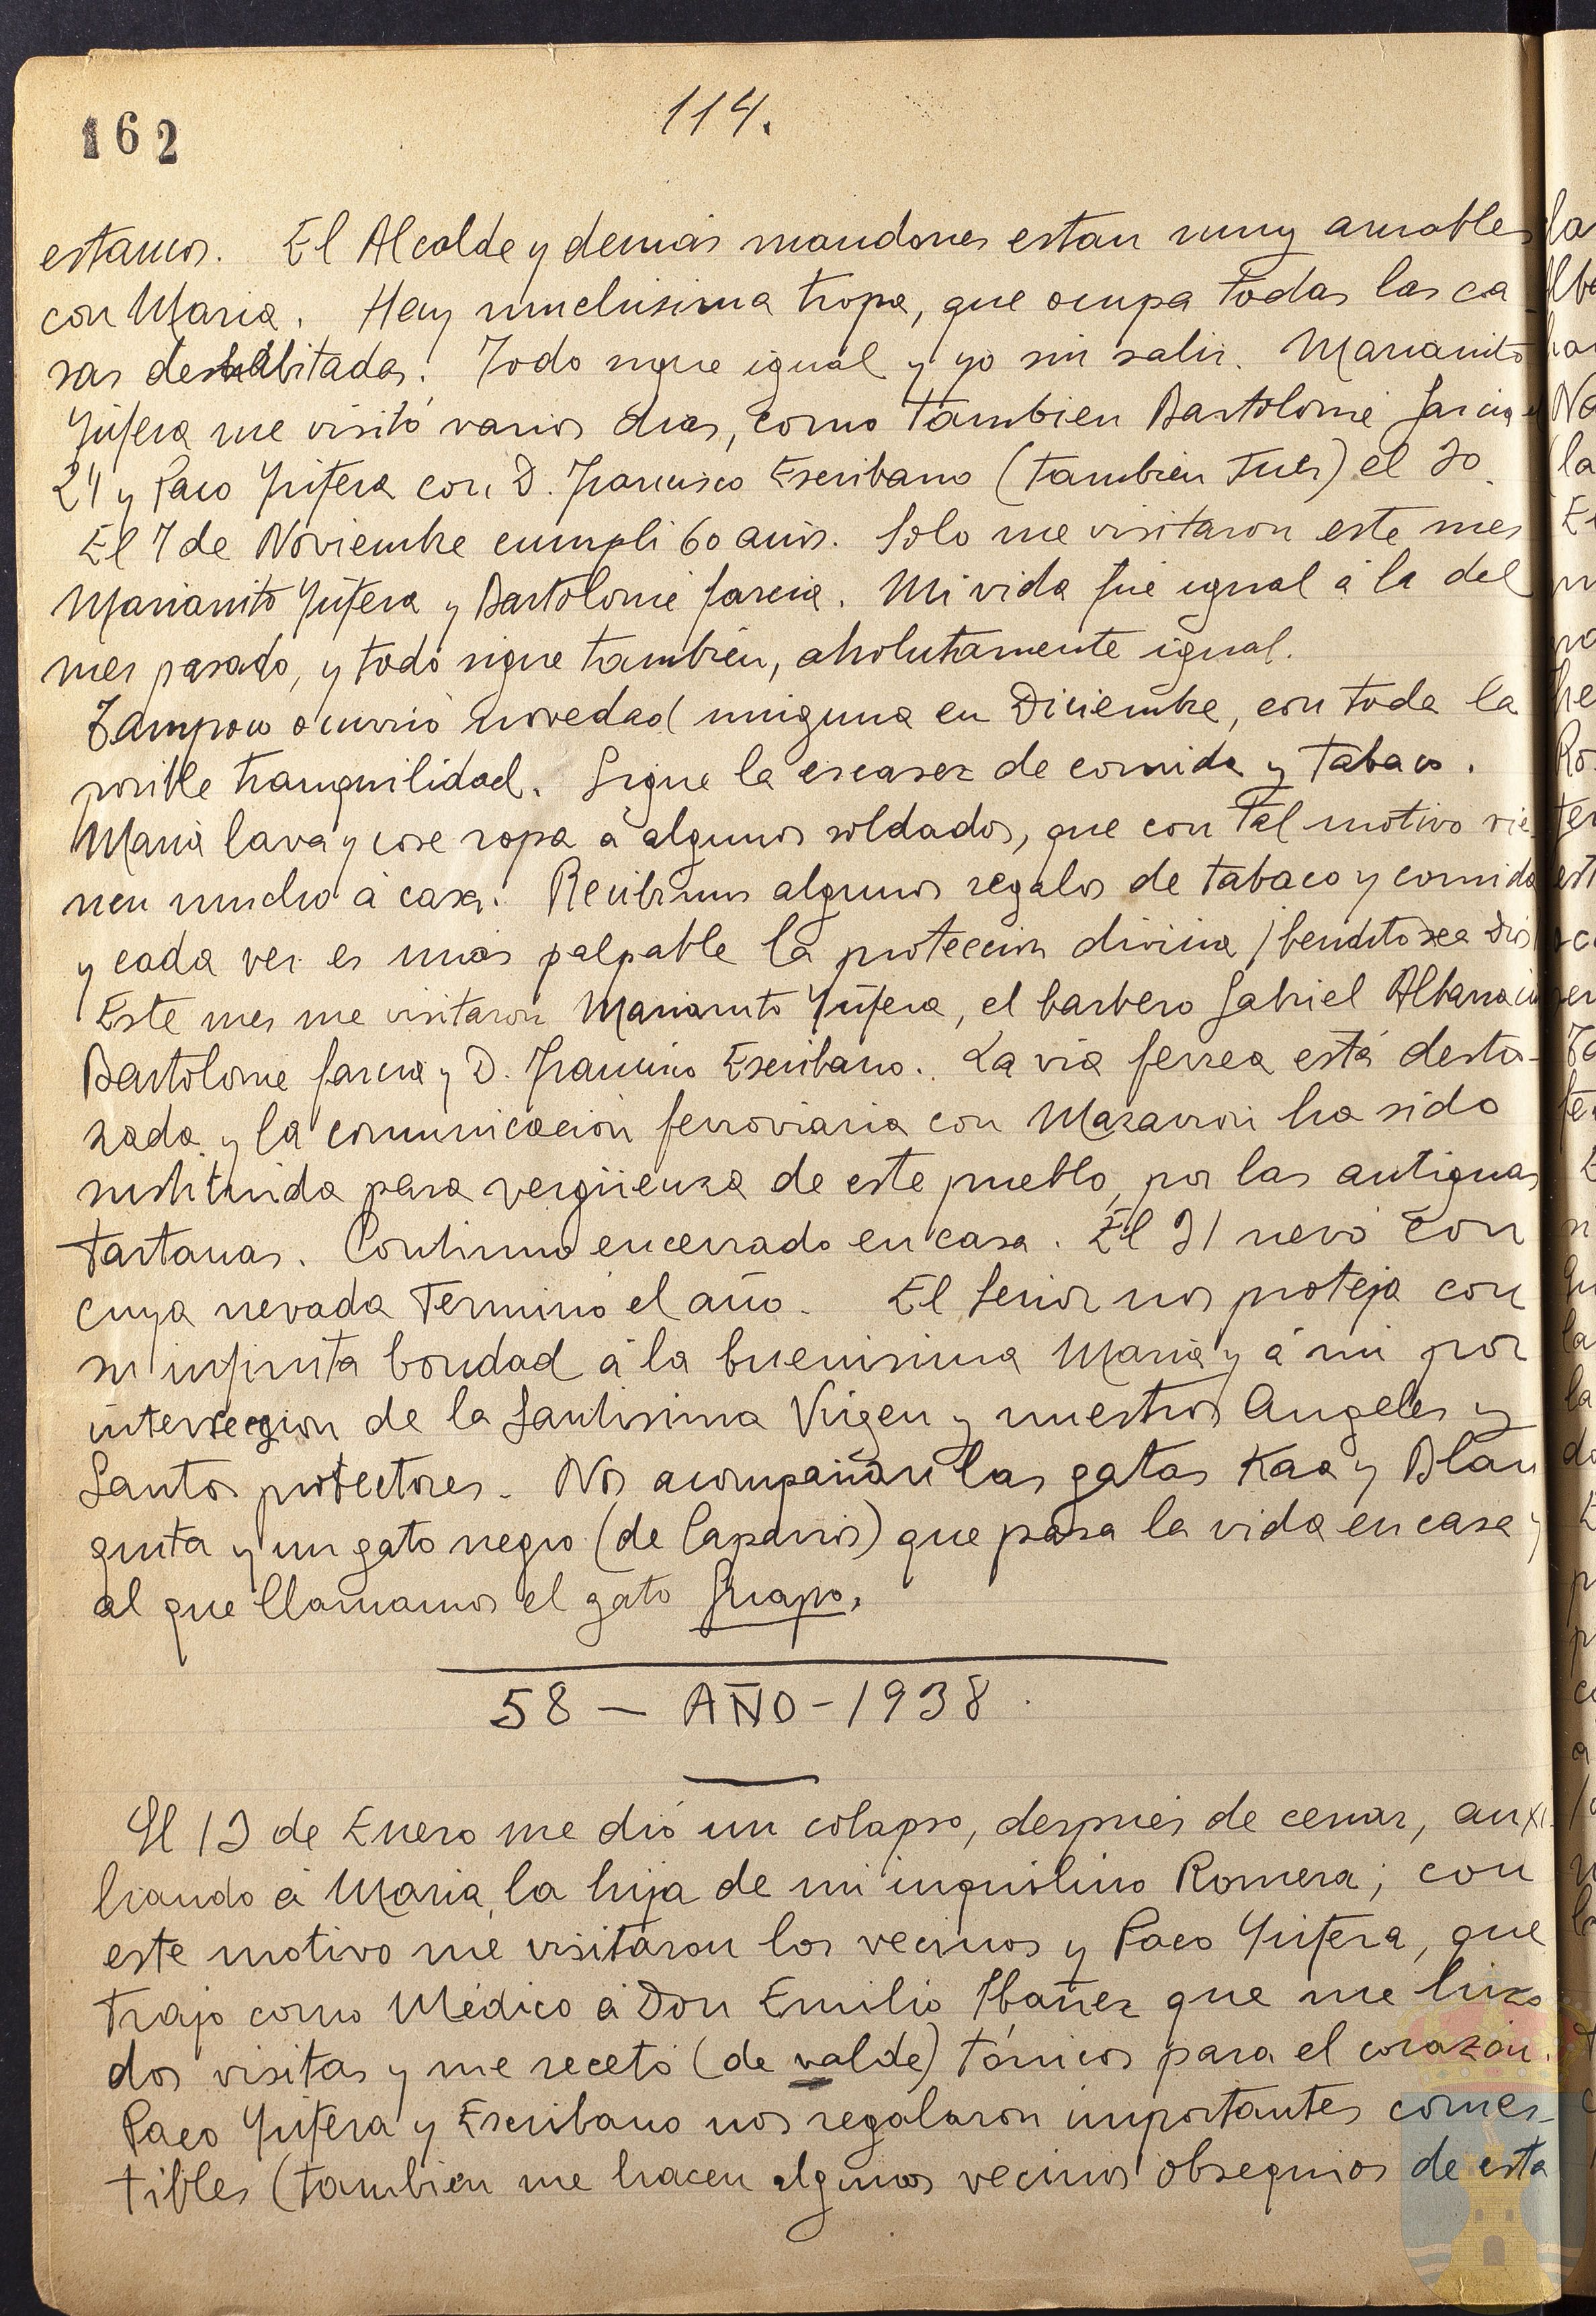 162
114.
estamos. El Alcalde y demás mandones estan muy amables
con Maria. Hay muchisima tropa, que ocupa todas las ca
sas deshabitadas. Todo sigue igual y yo sin salir. Marianito
Yúfera me visitó varios dias, como tambien Bartolomé Garcia el
24 y Paco Yúfera con D. Francisco Escribano (tambien Juez) el 30.
El 7 de Noviembre cumpli 60 años. Solo me visitaron este mes
Marianito Yúfera y Bartolomé Garcia. Mi vida fué igual á la del
mes pasado, y todo sigue tambien, absolutamente igual.
Tampoco ocurrió novedad ninguna en Diciembre, con toda la
posible tranquilidad. Sigue la escasez de comida y tabaco.
Maria lava y cose ropa á algunos soldados, que con tal motivo vie-
nen mucho á casa. Recibimos algunos regalos de tabaco y comida
y cada vez es más palpable la protección divina ¡bendito sea Dios
Este mes me visitaron Marianito Yúfera, el barbero Gabriel Albarracin
Bartolome Garcia y D. Francisco Escribano. La via ferrea está destro-
zada y la comunicación ferroviaria con Mazarron ha sido
sustituida para vergüenza de este pueblo, por las antiguas
tartanas. Continuo encerrado en casa. El 31 nevó con
cuya nevada terminó el año. El Señor nos proteja con
su infinita bondad á la buenisima Maria y á mi por
intersección de la Santisima Virgen y nuestros Angeles y
Santos protectores. Nos acompañan las gatas Kaa y Blan
quita y un gato negro (de Caparrós) que pasa la vida en casa y
al que llamamos el gato Guapo.
58 - AÑO - 1938.
El 13 de Enero me dió un colapso, después de cenar, auxi-
liando á Maria, la hija de mi inquilino Romera; con
este motivo me visitaron los vecinos y Paco Yúfera, que
trajo como Médico á Don Emilio Ibañez que me hizo
dos visitas y me recetó (de valde) tónicos para el corazón.
Paco Yúfera y Escribano nos regalaron importantes comes-
tibles (tambien me hacen algunos vecinos obsequios de esta